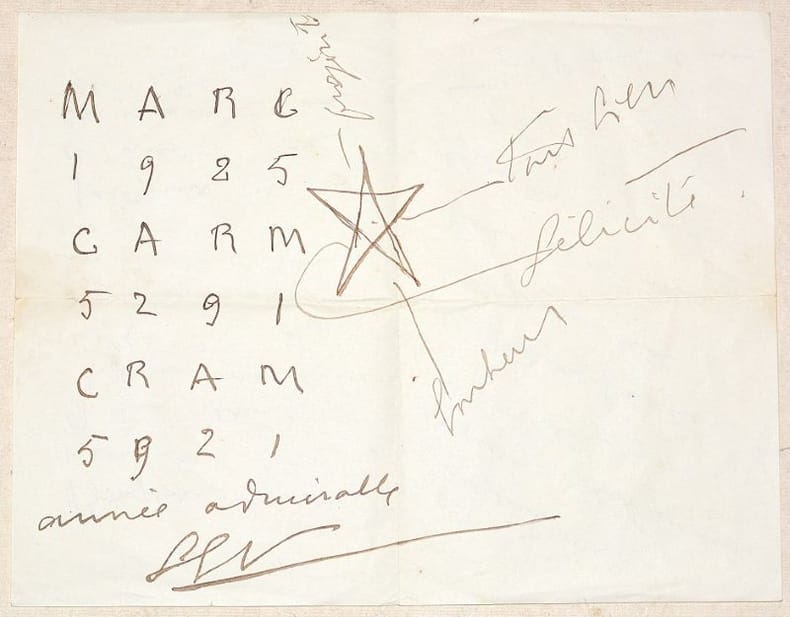 M A R C
1 9 2 5
C A R M
5 2 9 1
C R A M
5 9 2 1
année admirable
Félicité
Bonheur